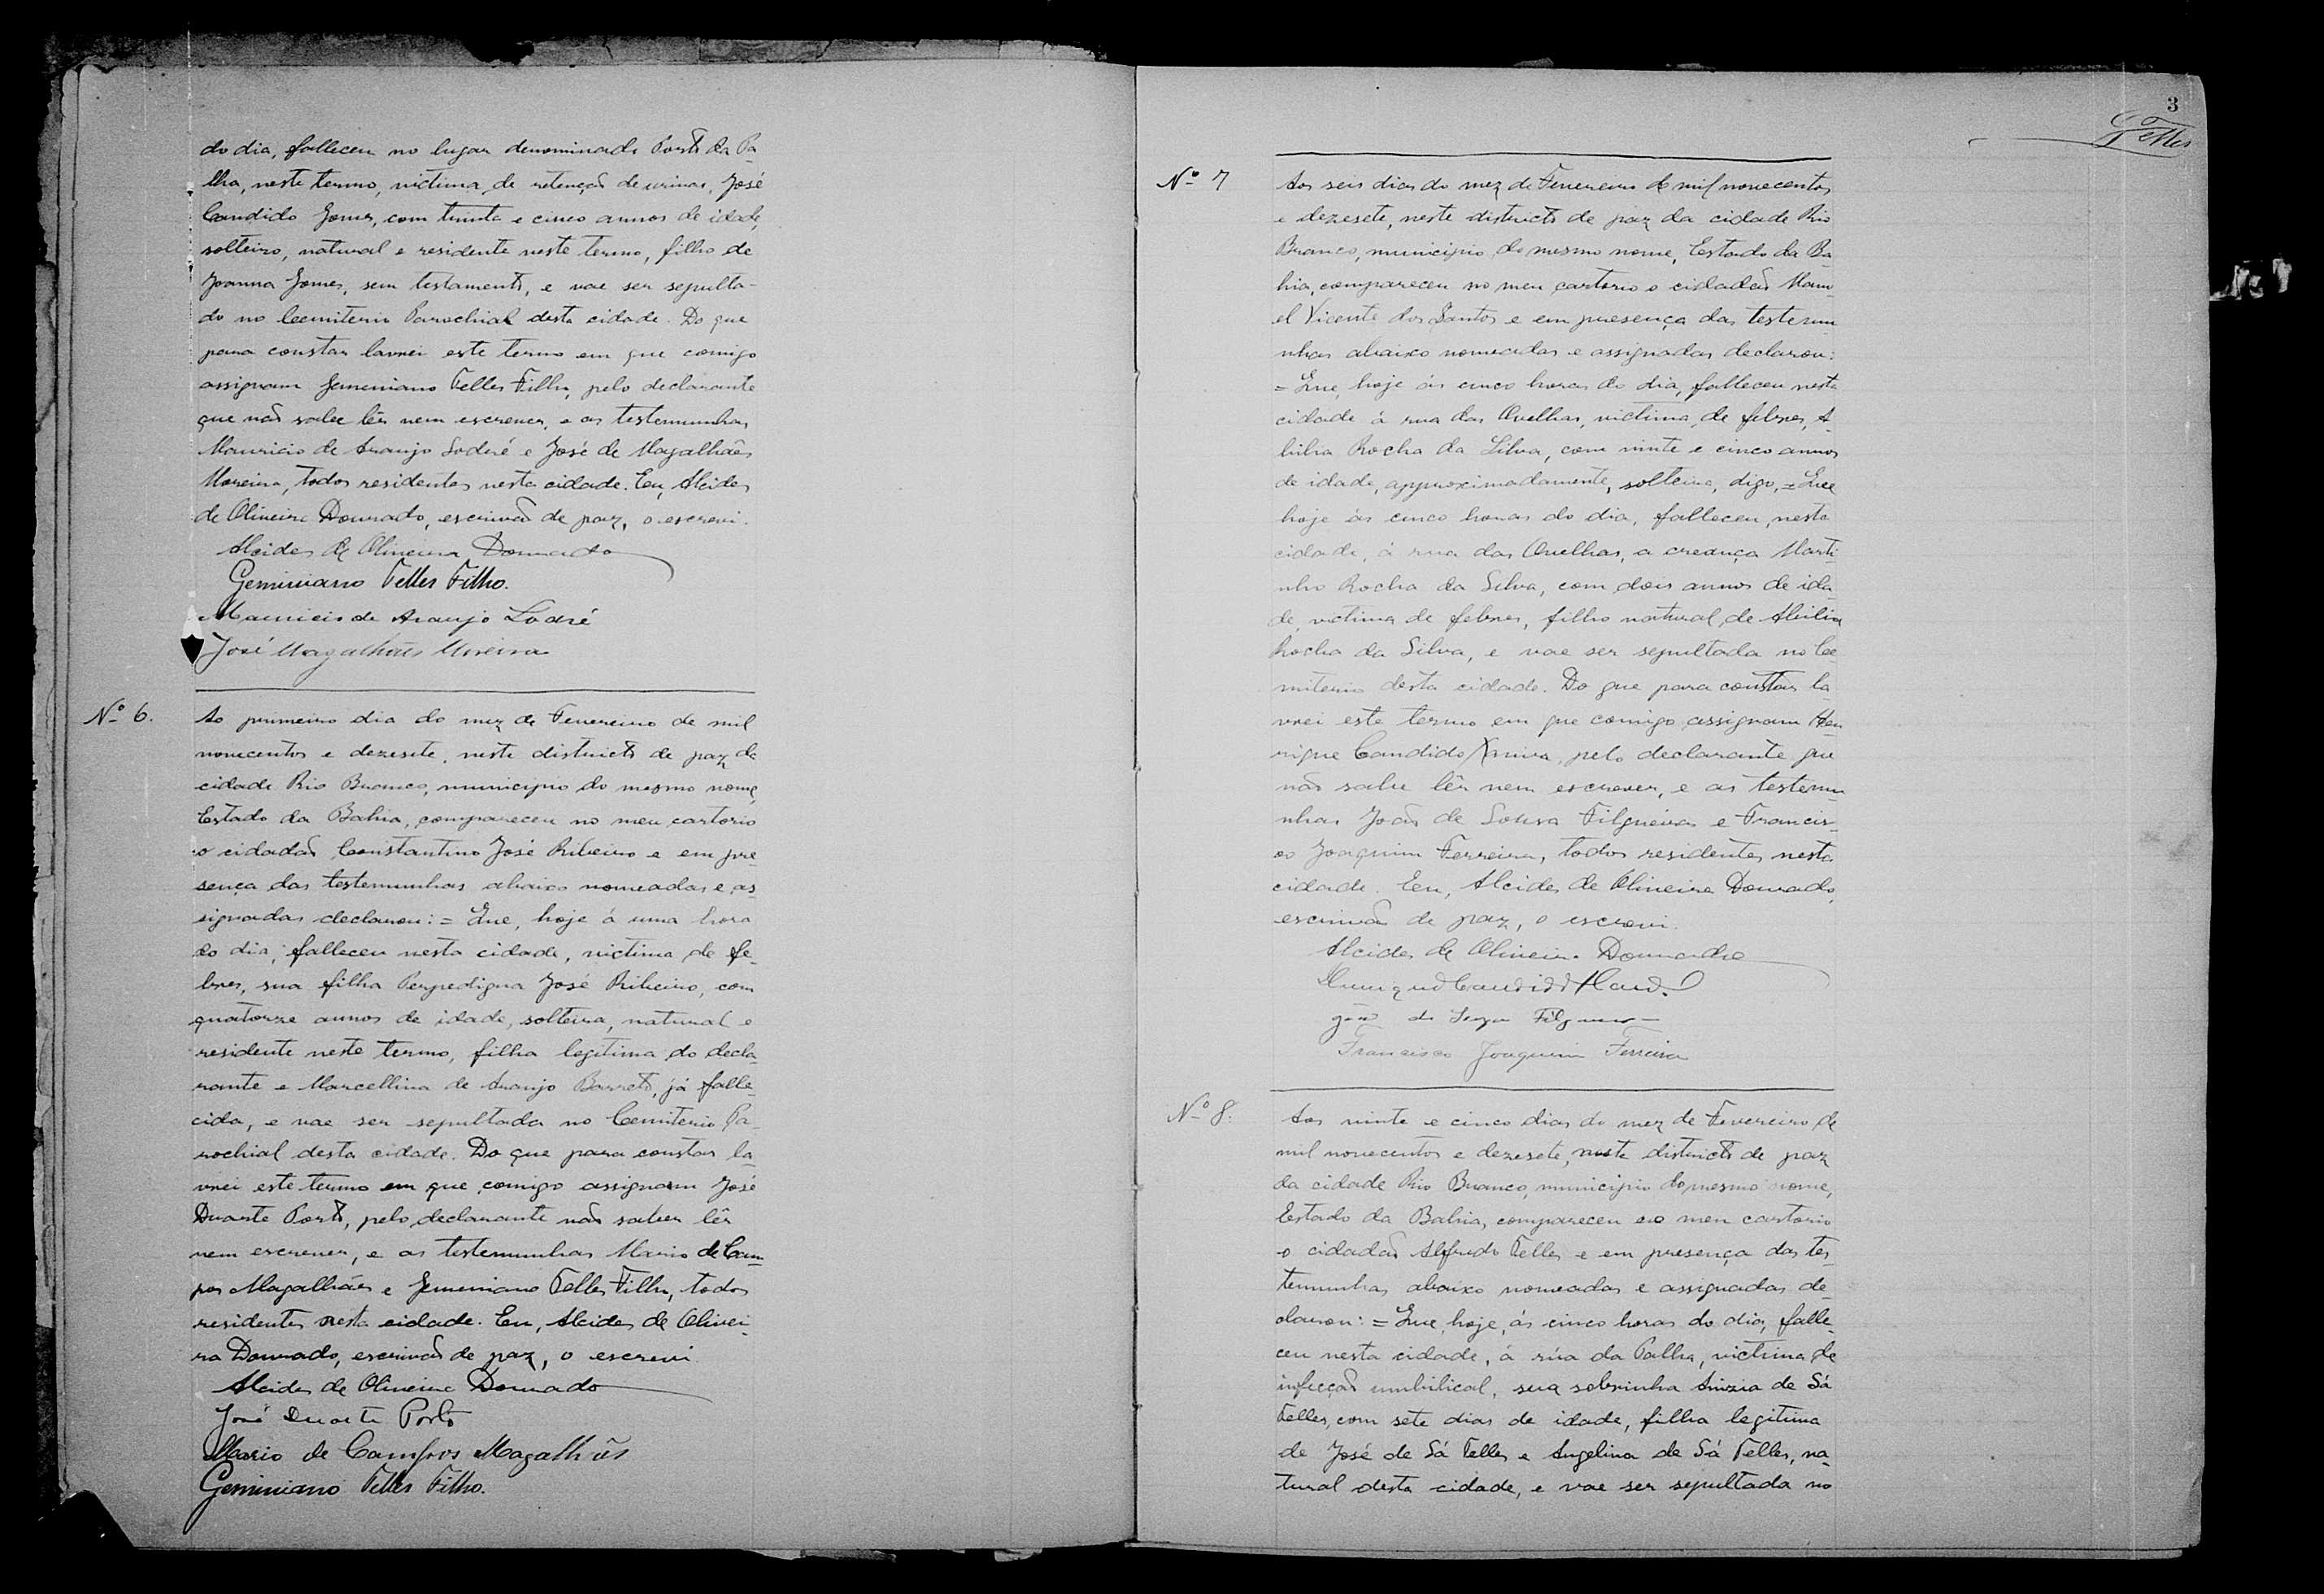 do dia, falleceu no lugar denominado Porto da Pa-
lha, neste termo, victima de retenção de urinas, José
Candido Gomes, com trinta e cinco annos de idade,
solteiro, natural e residente neste termo, filho de
Joanna Gomes, sem testamento, e vae ser sepulta-
do no Cemiterio Parochial desta cidade. Do que
para constar lavrei este termo em que comigo
assignam Geminiano Telles Filho, pelo declarante
que não sabe lêr nem escrever, e as testemunhas
Mauricio de Araujo Sodré e José de Magalhães
Moreira, todos residentes nesta cidade. Eu, Alcides
de Oliveira Dourado, escrivão de paz, o escrevi.
Alcides de Oliveira Dourado
Geminiano Telles Filho.
Mauricio de Araujo Sodré
José Magalhães Moreira
Nº 6.
Ao primeiro dia do mez de Fevereiro de mil
novecentos e dezesete, neste districto de paz da
cidade Rio Branco, municipio do mesmo nome,
Estado da Bahia, compareceu no meu cartorio
o cidadão Constantino José Ribeiro e em pre-
sença das testemunhas abaixo nomeadas e as
signadas declarou: = Que, hoje á uma hora
do dia, falleceu nesta cidade, victima de fe-
bres, sua filha Perpedigna José Ribeiro, com
quatorze annos de idade, solteira, natural e
residente neste termo, filha legitima do decla
rante e Marcellina de Araujo Barreto, já falle-
cida, e vae ser sepultada no Cemiterio Pa-
rochial desta cidade. Do que para constar la-
vrei este termo em que comigo assignam José
Duarte Porto, pelo declarante não saber lêr
nem escrever, e as testemunhas Mario de Cam-
pos Magalhães e Geminiano Telles Filho, todos
residentes nesta cidade. Eu, Alcides de Olivei-
ra Dourado, escrivão de paz, o escrevi
Alcides de Oliveira Dourado
José Duarte Porto
Mario de Campos Magalhães
Geminiano Telles Filho.
3
Telles
Nº 7
Aos seis dias do mez de Fevereiro de mil novecentos
e dezesete, neste districto de paz da cidade Rio
Branco, municipio do mesmo nome, Estado da Ba-
hia, compareceu no meu cartorio o cidadão Manu
el Vicente dos Santos e em presença das testemu
nhas abaixo nomeadas e assignadas declarou:
= Que, hoje ás cinco horas do dia, falleceu nesta
cidade á rua das Ovelhas, victima de febres, A-
bilia Rocha da Silva, com vinte e cinco annos
de idade, approximadamente, solteira, digo, = Que
hoje ás cinco horas do dia, falleceu, nesta
cidade, á rua das Ovelhas, a creança Marti-
nho Rocha da Silva, com dois annos de ida-
de, victima de febres, filho natural de Abilia
Rocha da Silva, e vae ser sepultada no Ce-
miterio desta cidade. Do que para constar la-
vrei este termo em que comigo assignam Hen
rique Candido, pelo declarante que
não sabe lêr nem escrever, e as testemu
nhas João de Sousa Filgueiras e Francis-
co Joaquim Ferreira, todos residentes nesta
cidade. Eu, Alcides de Oliveira Dourado,
escrivão de paz, o escrevi.
Alcides de Oliveira Dourado
Henrique Candido
João de Souza Filgueiras
Francisco Joaquim Ferreira
Nº 8.
Aos vinte e cinco dias do mez de Fevereiro de
mil novecentos e dezesete, neste districto de paz
da cidade Rio Branco, municipio do mesmo nome,
Estado da Bahia, compareceu no meu cartorio
o cidadão Alfredo Telles e em presença das tes-
temunhas abaixo nomeadas e assignadas de-
clarou: = Que, hoje, ás cinco horas do dia, falle-
ceu nesta cidade, á rúa da Palha, victima de
infecção umbilical, sua sobrinha Anizia de Sá
Telles, com sete dias de idade, filha legitima
de José de Sá Telles e Angelina de Sá Telles, na-
tural desta cidade, e vae ser sepultada no